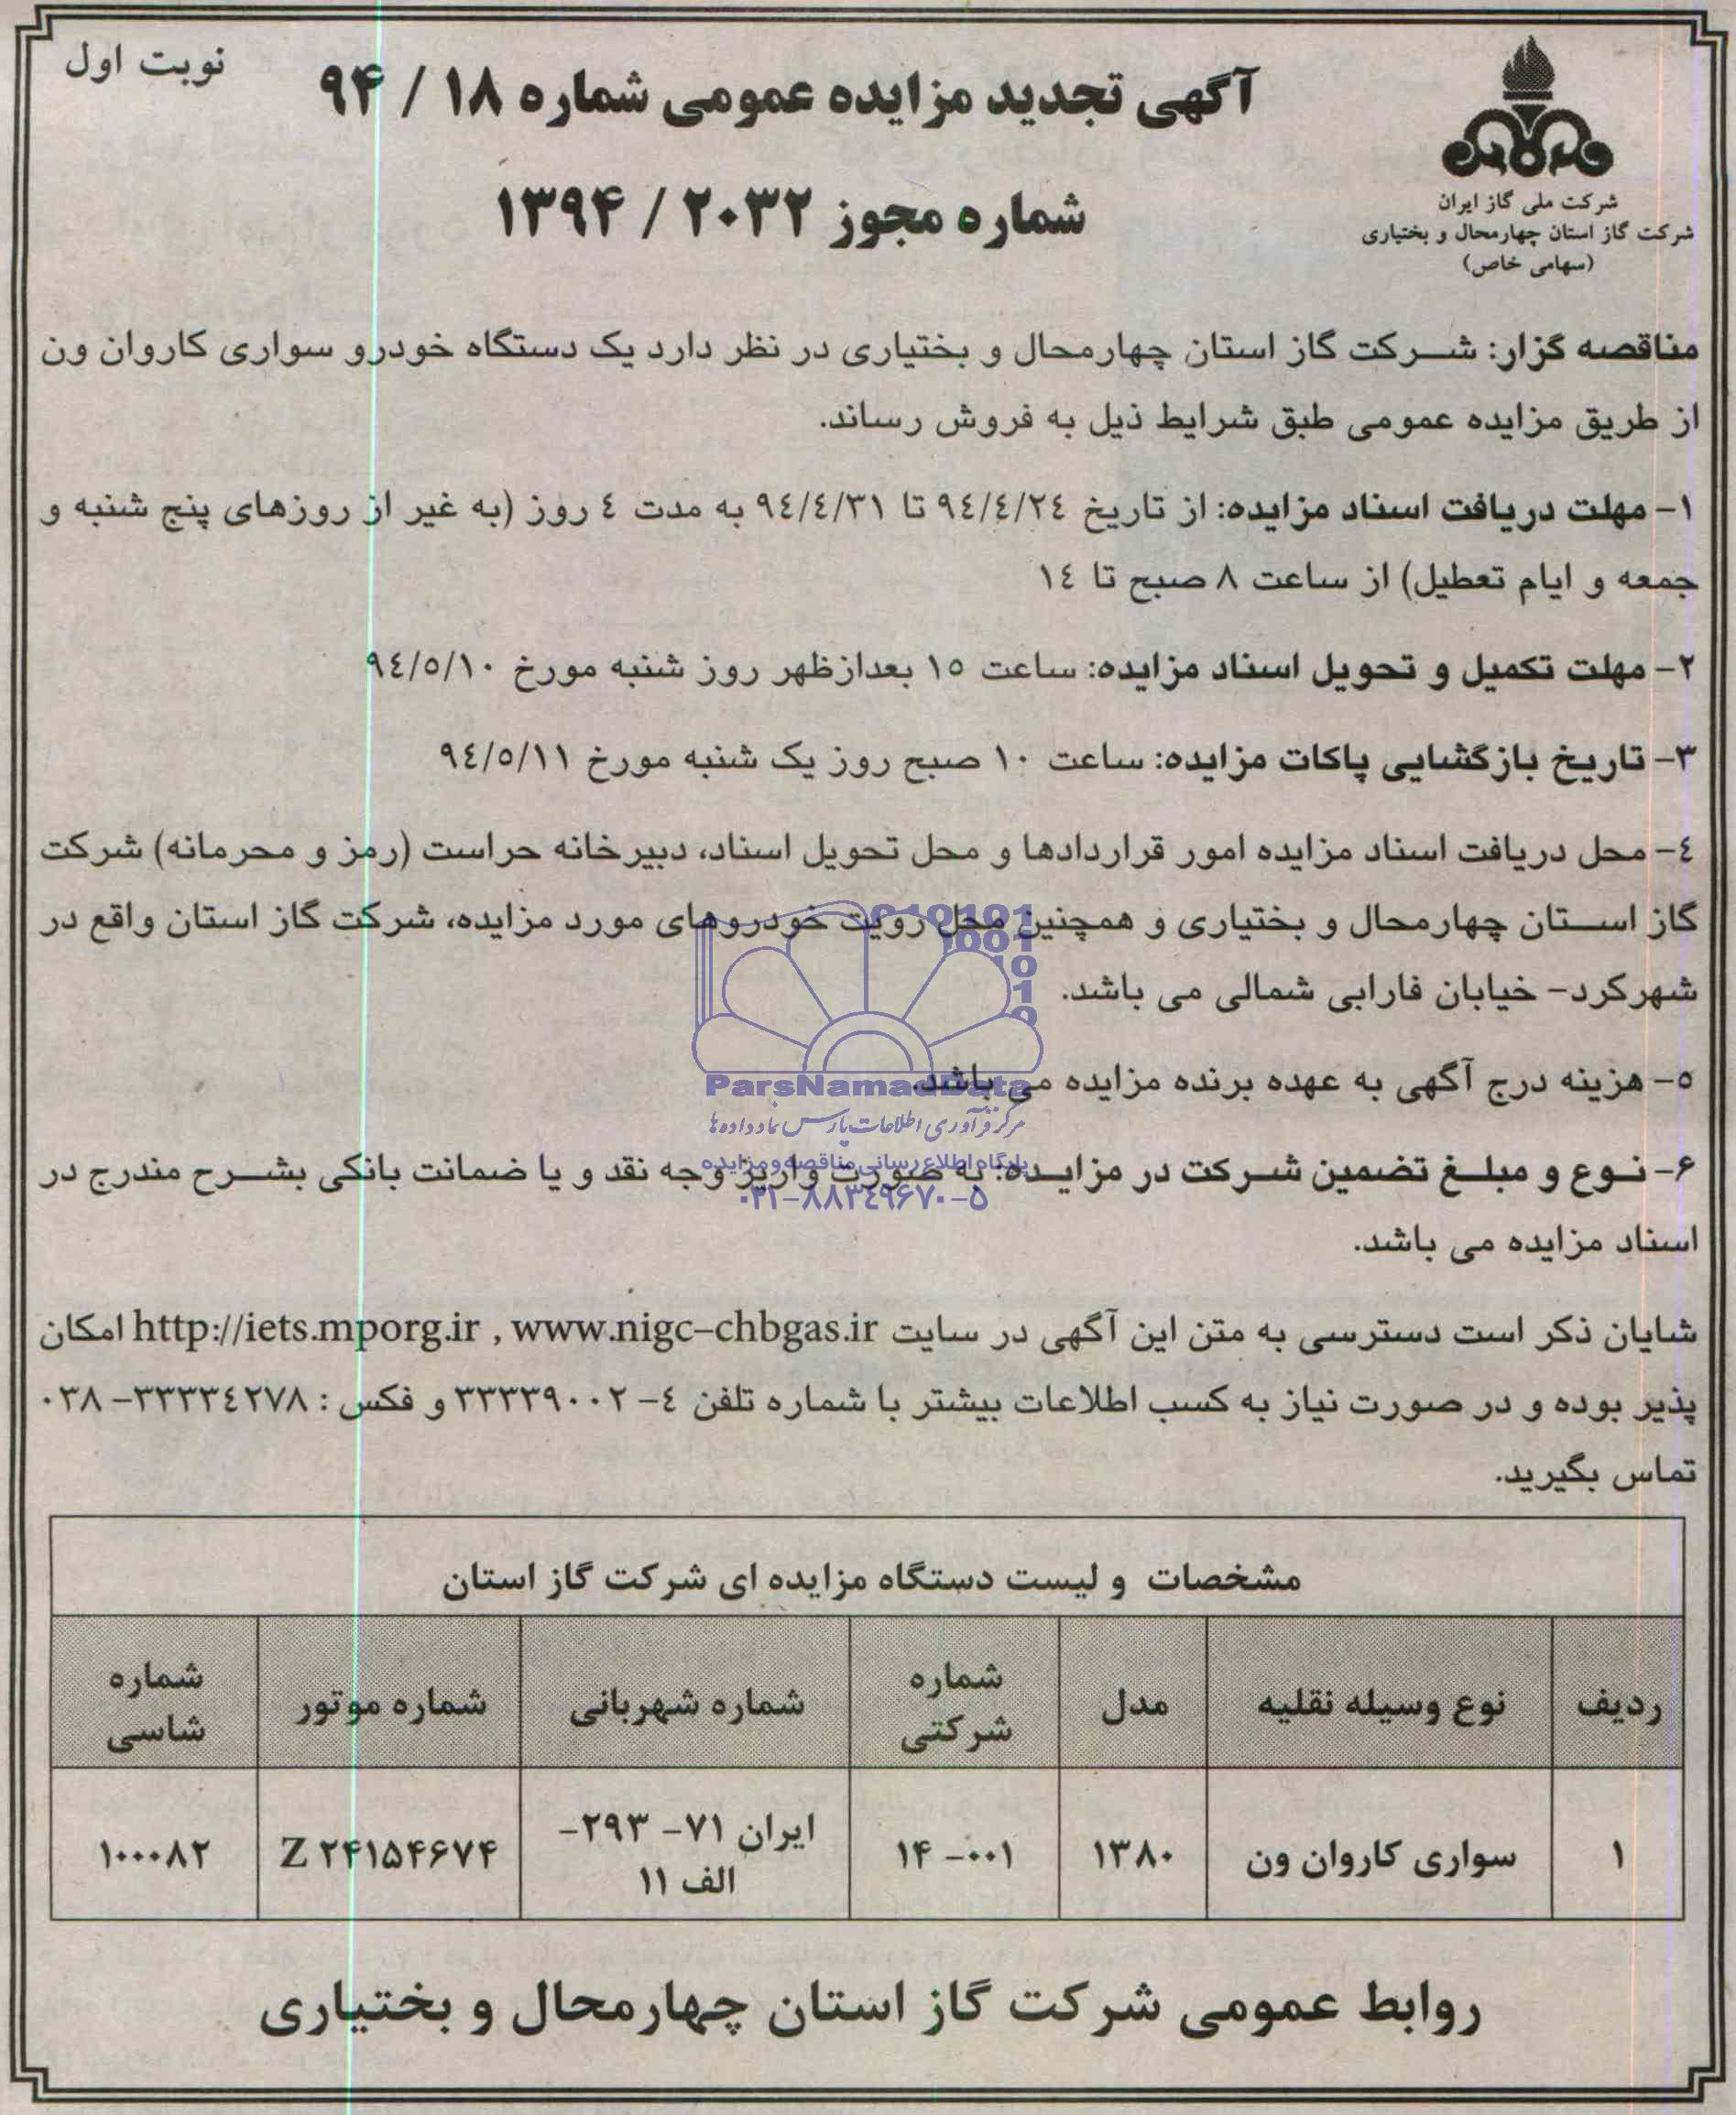 نوبت اول
آگهی تجدید مزایده عمومی شماره ۱۸ / ۹۴
شماره مجوز ۲۰۳۲ / ۱۳۹۴
شرکت ملی گاز ایران
شرکت گاز استان چهارمحال و بختیاری
(سهامی خاص)
مناقصه گزار: شرکت گاز استان چهارمحال و بختیاری در نظر دارد یک دستگاه خودرو سواری کاروان ون
از طریق مزایده عمومی طبق شرایط ذیل به فروش رساند.
۱- مهلت دریافت اسناد مزایده: از تاریخ ۹٤/٤/۲٤ تا ۹٤/٤/۳۱ به مدت ٤ روز (به غیر از روزهای پنج شنبه و
جمعه و ایام تعطیل) از ساعت ۸ صبح تا ۱٤
۲- مهلت تکمیل و تحویل اسناد مزایده: ساعت ۱۵ بعدازظهر روز شنبه مورخ ۹٤/۵/۱۰
۳- تاریخ بازگشایی پاکات مزایده: ساعت ۱۰ صبح روز یک شنبه مورخ ۹٤/۵/۱۱
٤- محل دریافت اسناد مزایده امور قراردادها و محل تحویل اسناد، دبیرخانه حراست (رمز و محرمانه) شرکت
گاز استان چهارمحال و بختیاری و همچنین محل رویت خودروهای مورد مزایده، شرکت گاز استان واقع در
شهرکرد- خیابان فارابی شمالی می باشد.
۵- هزینه درج آگهی به عهده برنده مزایده می باشد.
ParsNamadData
مرکز فرآوری اطلاعات پارس نماد داده ها
پایگاه اطلاع رسانی مناقصه و مزایده
۰۲۱-۸۸۳٤۹۶۷۰-۵
۶- نوع و مبلغ تضمین شرکت در مزایده: به صورت واریز وجه نقد و یا ضمانت بانکی بشرح مندرج در
اسناد مزایده می باشد.
شایان ذکر است دسترسی به متن این آگهی در سایت http://iets.mporg.ir , www.nigc-chbgas.ir امکان
پذیر بوده و در صورت نیاز به کسب اطلاعات بیشتر با شماره تلفن ٤- ۳۳۳۳۹۰۰۲ و فکس : ۳۳۳۳٤۲۷۸- ۰۳۸
تماس بگیرید.
مشخصات و لیست دستگاه مزایده ای شرکت گاز استان
ردیف نوع وسیله نقلیه مدل شماره شرکتی شماره شهربانی شماره موتور شماره شاسی
۱ سواری کاروان ون ۱۳۸۰ ۰۰۱- ۱۴ ایران ۷۱- ۲۹۳- الف ۱۱ Z ۲۴۱۵۴۶۷۴ ۱۰۰۰۸۲
روابط عمومی شرکت گاز استان چهارمحال و بختیاری